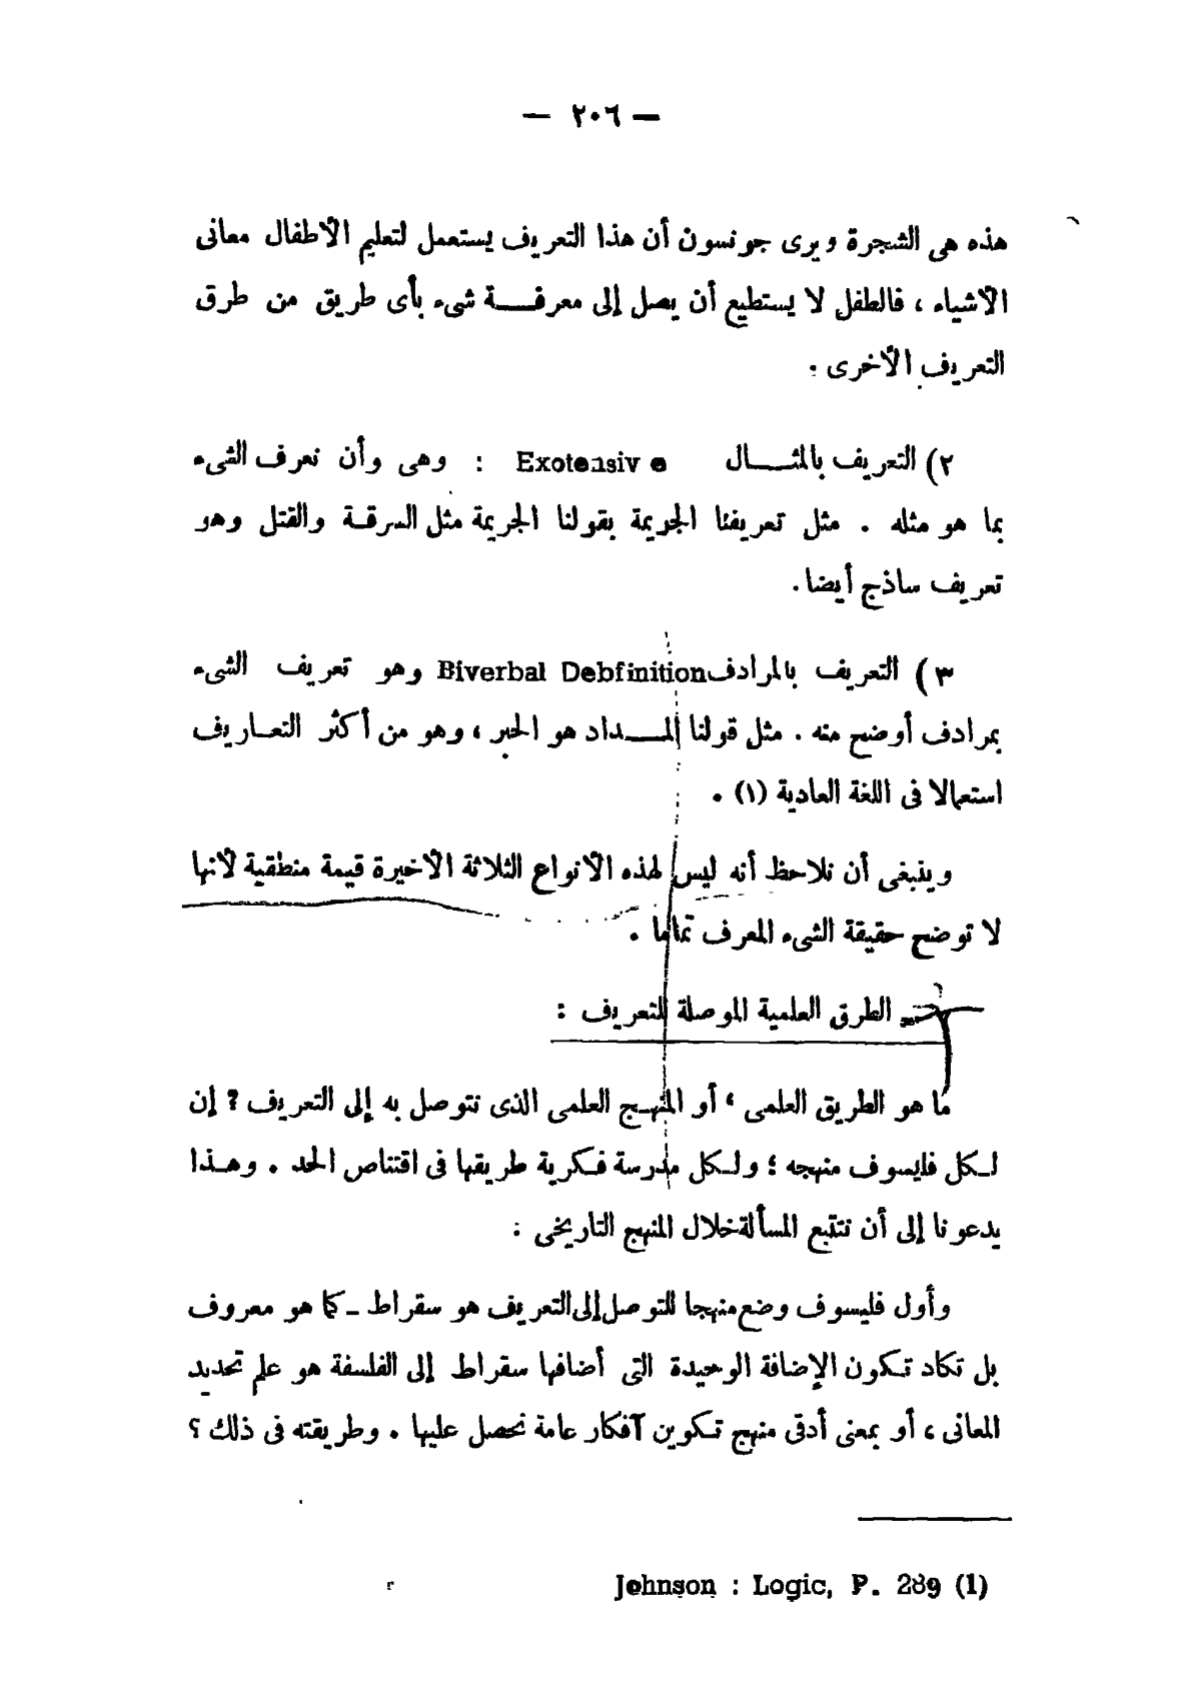 — ٢٠٦ —
هذه هى الشجرة ويرى جونسون أن هذا التعريف يستعمل لتعليم الأطفال معانى
الأشياء ، فالطفل لا يستطيع أن يصل إلى معرفة شىء بأى طريق من طرق
التعريف الأخرى .
٢) التعريف بالمثال Exotensive : وهى وأن نعرف الشىء
بما هو مثله . مثل تعريفنا الجريمة بقولنا الجريمة مثل السرقة والقتل وهو
تعريف ساذج أيضا .
٣ ) التعريف بالمرادف Biverbal Debfinition وهو تعريف الشىء
بمرادف أوضح منه . مثل قولنا المداد هو الحبر ، وهو من أكثر التعاريف
استعمالا فى اللغة العادية (١) .
وينبغى أن نلاحظ أنه ليس لهذه الأنواع الثلاثة الأخيرة قيمة منطقية لأنها
لا توضح حقيقة الشىء المعرف تماما .
الطرق العلمية الموصلة للتعريف :
ما هو الطريق العلمى ، أو المنهج العلمى الذى نتوصل به إلى التعريف ? إن
لكل فليسوف منهجه ؛ ولكل مدرسة فكرية طريقها فى اقتناص الحد . وهذا
يدعونا إلى أن نتتبع المسألة خلال المنهج التاريخى :
وأول فليسوف وضع منهجا للتوصل إلى التعريف هو سقراط ـ كما هو معروف
بل تكاد تكون الإضافة الوحيدة التى أضافها سقراط إلى الفلسفة هو علم تحديد
المعانى ، أو بمعنى أدق منهج تكوين آفكار عامة نحصل عليها . وطريقته فى ذلك ؟
Johnson : Logic, P. 289 (1)